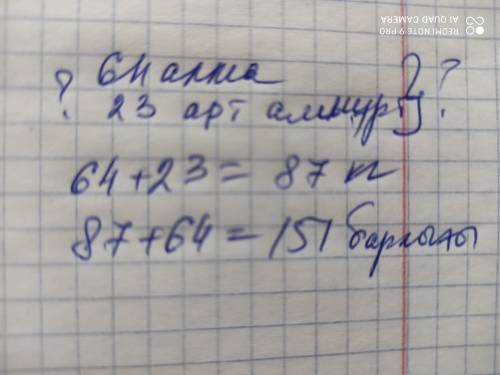 REDMI NOTE 9 PRO
AI QUAD CAMERA
64 алма
? 23 арт алмұрт } ?
64+23= 87 кг
87+64=151 барлығы